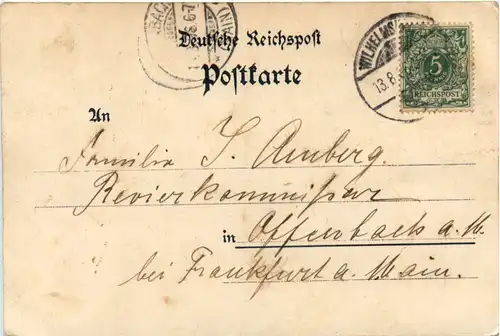 Deutsche Reichspost
Postkarte
WILHELMS
13.8.
5
REICHSPOST
An
Familie J. Amberg.
Revierkommissar
in Offenbach a. M.
bei Frankfurt a. Main.